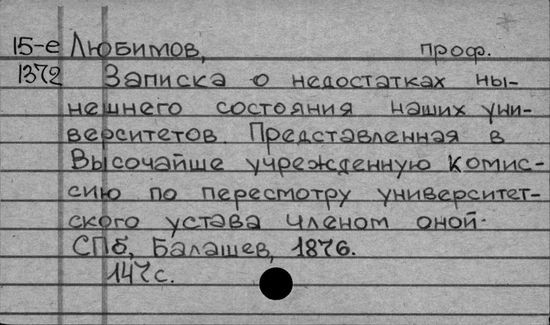 15-е Любимов, проф.
1372 Записка о недостатках ны-
нешнего состояния наших уни-
верситетов. Представленная в
Высочайше учрежденную Комис-
сию по пересмотру университет-
ского устава членом оной.
СПб, Балашев, 1876.
147с.